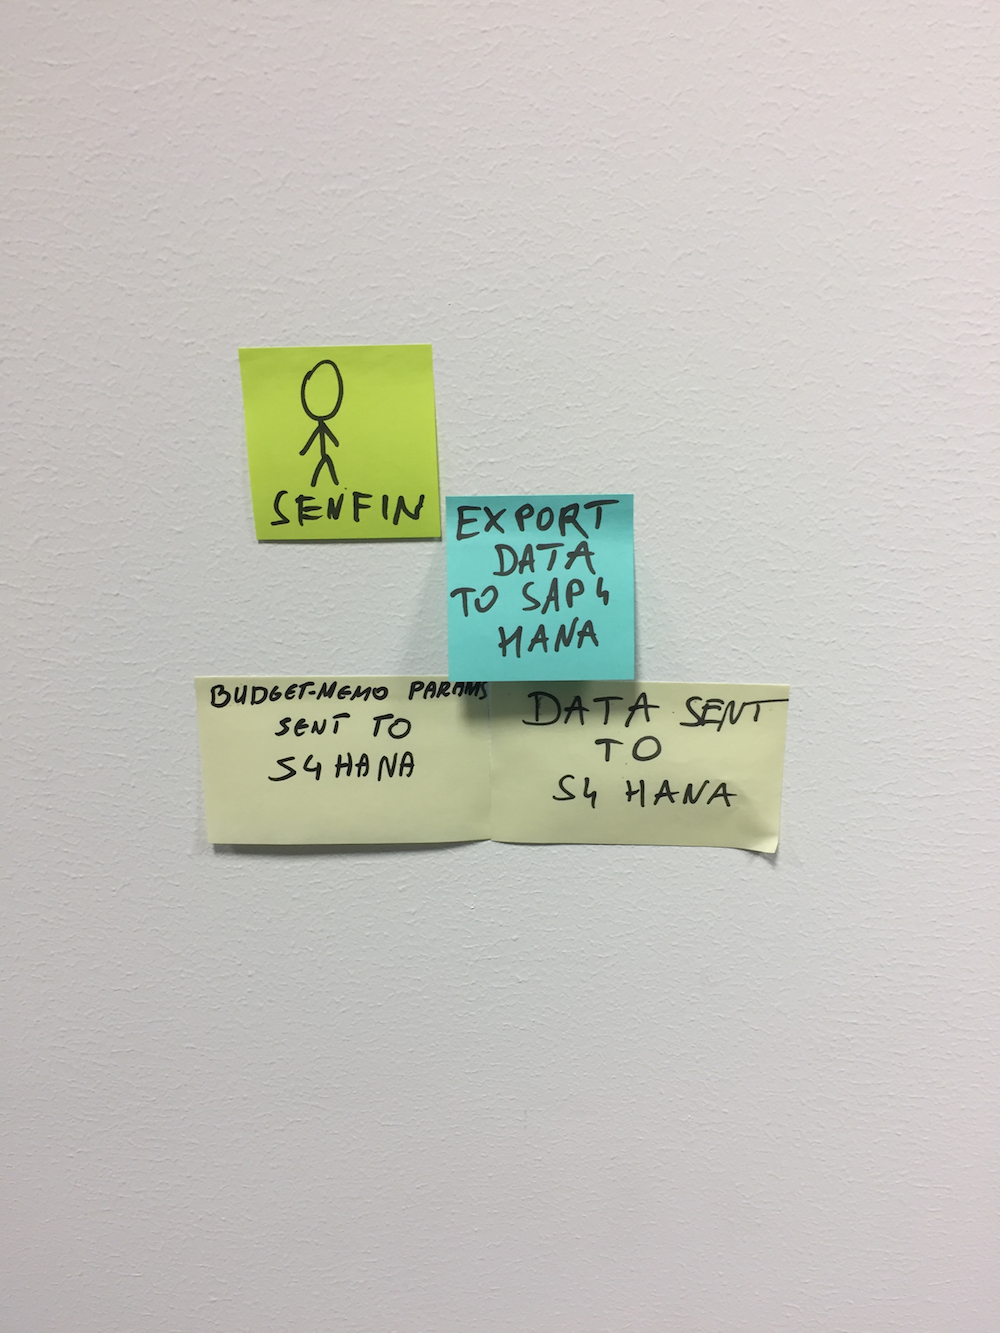 SENFIN
EXPORT
DATA
TO SAP4
HANA
BUDGET-MEMO PARAMS
SENT TO
S4 HANA
DATA SENT
TO
S4 HANA